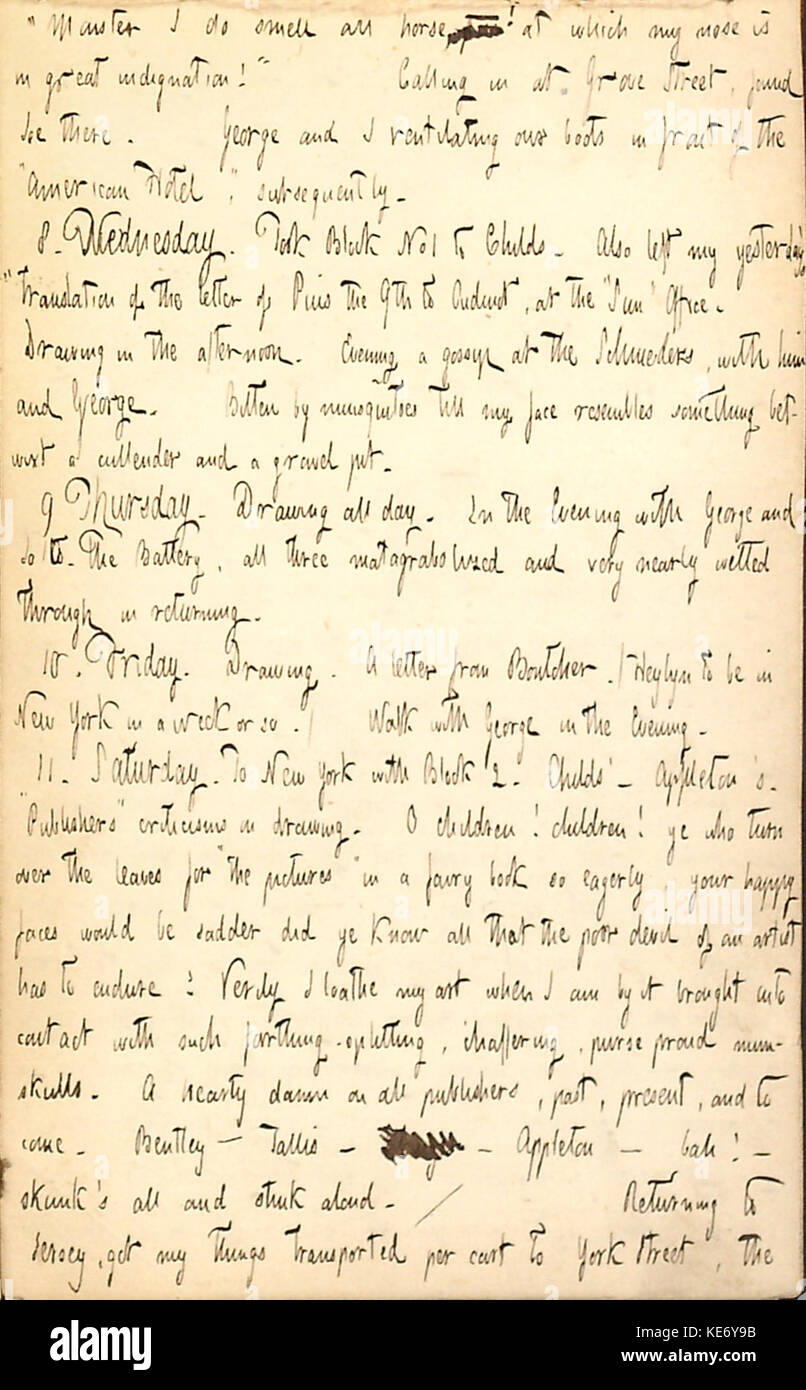 "Monster I do smell all horse, ! at which my nose is
in great indignation!" Calling in at Grove Street, found
Joe there. George and I ventilating our boots in front of the
"American Hotel," subsequently.
8. Wednesday. Took Block No 1 to Childs. Also left my yesterday's
translation of the letter of Pius the 9th to Oudinot, at the "Sun" Office.
Drawing in the afternoon. Evening a gossip at the Schmeiders, with him
and George. Bitten by musquitoes till my face resembles something bet-
wixt a cullender and a gravel pit.
9 Thursday. Drawing all day. In the Evening with George and
to The Battery, all three matagrabolized and very nearly wetted
through in returning.
10. Friday. Drawing. A letter from Boutcher. / Heylyn to be in
New York in a week or so. / Walk with George in the Evening.
11. Saturday. To New York with Block 2. Childs' – Appleton's.
"Publishers" criticisms on drawing. O children! children! ye who turn
over the leaves for "the pictures" in a fairy book so eagerly, your happy
faces would be sadder did ye know all that the poor devil of an artist
has to endure! Verily I loathe my art when I am by it brought into
contact with such farthing-splitting, chaffering, purse proud num-
skulls. A hearty damn on all publishers, past, present, and to
come. Bentley – Tallis – – Appleton – bah! –
skunk's all and stink aloud. / Returning to
Jersey, got my things transported per cart to York Street, the
alamy
Image ID: KE6Y9B
www.alamy.com